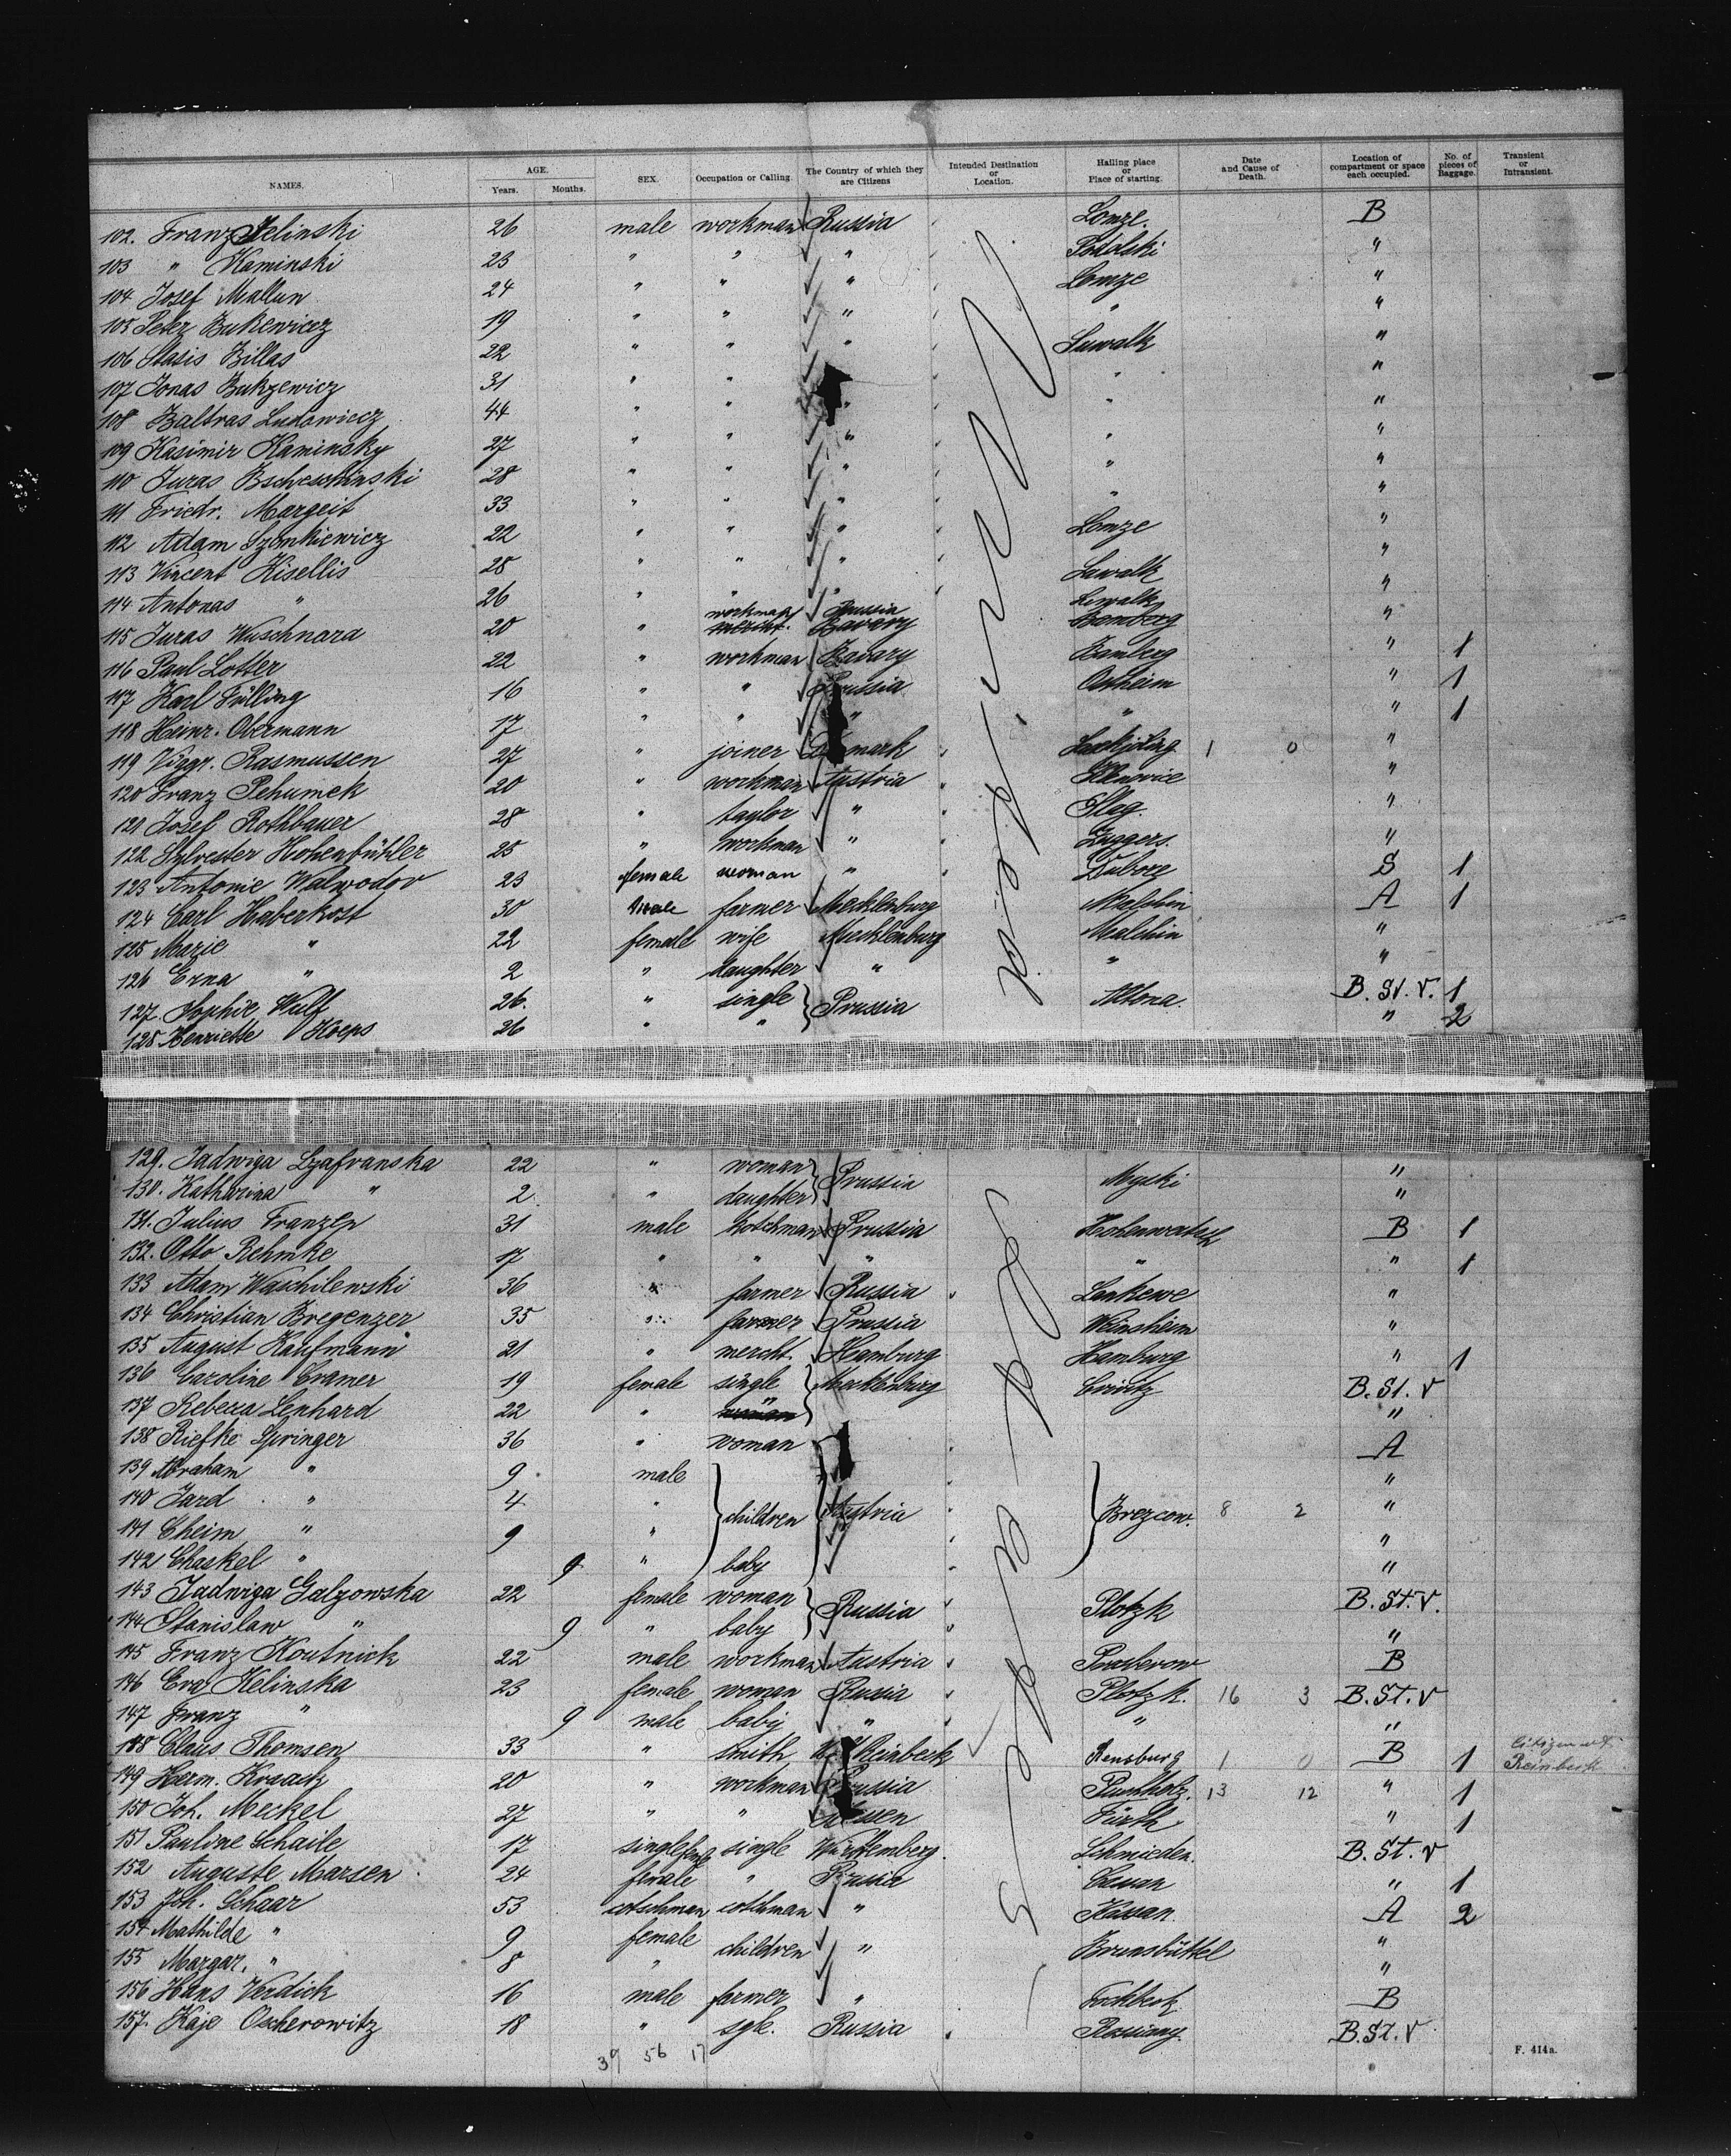 NAMES. AGE. Years. Months. SEX. Occupation or Calling. The Country of which they are Citizens Intended Destination or Location. Hailing place or Place of starting. Date and Cause of Death. Location of compartment or space each occupied. No. of pieces of Baggage. Transient or Intransient.
102. Franz Jelinski 26 male workman Russia Lomze. B
103 " Kaminski 23 " " " Podolski "
104 Josef Mallun 24 " " " Lomze "
105 Peter Bukewicz 19 " " " " "
106 Stasis Billas 22 " " " Suwalk "
107 Jonas Bukzewicz 31 " " " " "
108 Baltras Ludowicz 44 " " " " "
109 Kasimir Kaminsky 27 " " " " "
110 Juras 28 " " " " "
111 Friedr. Margeit 33 " " " " "
112 Adam Szonkiewicz 22 " " " Lomze "
113 Vincent Kisellis 25 " " " Suwalk "
114 Antonas " 26 " " " Suwalk "
115 Juras Wuschnora 20 " workman Russia Bomberg "
116 Paul Lotter 22 " workman Bavary Bamberg " 1
117 Karl Fülling 16 " " Prussia Ostheim " 1
118 Heinr. Obermann 17 " " " " " 1
119 Viggr. Rasmussen 27 " joiner Denmark 1 0 "
120 Franz Pehumek 20 " workman Austria "
121 Josef Rothbauer 28 " taylor " "
122 Sylvester Hohenbühler 25 " workman " "
123 Antonie Walwodov 23 female woman " S 1
124 Carl Haberkost 30 male farmer Mecklenburg Malchin A 1
125 Marie " 22 female wife Mecklenburg Malchin "
126 Erna " 2 " daughter " " "
127. Sophie Wulf 26. " single Prussia Altona. B. St. V. 1
128 Henriette Hoeps 26 " " " 2
129. Jadwiga Lzafranska 22 " woman Prussia Myski "
130. Katharina " 2 " daughter "
131. Julius Franzen 31 male kotchman Prussia Hohenwestedt B 1
132. Otto Rehmke 17 " " " " " 1
133 Adam Waschilewski 36 " farmer Russia Lankewe "
134 Christian Bregenzer 35 " farmer Prussia Weinsheim "
135 August Kaufmann 21 " mercht. Hamburg Hamburg " 1
136 Caroline Cramer 19 female single Mecklenburg Crivitz B. St. V
137 Rebecca Lenhard 22 " "
138 Riefke Springer 36 " woman A
139 Abraham " 9 male "
140 Jard " 4 " children Austria Brezcow. 8 2 "
141 Cheim " 9 " "
142 Chaskel " 9 " baby "
143 Jadwiga Galzowska 22 female woman Russia Plotzk B. St. V.
144 Stanislaw " 9 " baby "
145 Franz Koutnick 22 male workman Austria B
146 Eva Kelinska 23 female woman Russia Plotzk. 16 3 B. St. V
147 Franz " 9 male baby " " "
148 Claus Thomsen 33 " smith Reinbeck Rensburg 1 0 B 1 Citizen of Reinbeck
149 Herm. Kraack 20 " workman Prussia 13 12 " 1
150 Joh. Meckel 27 " " Hessen Fürth " 1
151 Pauline Schaile 17 single single Württemberg. Schmieden. B. St. V
152 Auguste Marsen 24 female " Prussia " 1
153 Joh. Schaar 53 cotschman cotchman " A 2
154 Mathilde " 9 female children " Brunsbüttel "
155 Margar. " 8 " "
156 Hans Verdick 16 male farmer " Fockbeck B
157. Kaje Oscherowitz 18 " sgle. Russia B. St. V
39 56 17
F. 414a.